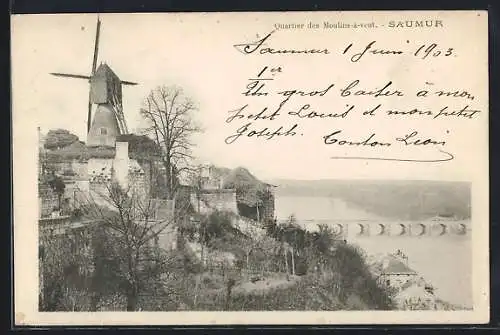 Quartier des Moulins-à-vent. - SAUMUR
Saumur 1 Juin 1903
1er
Un gros baiser à mon
petit Louis et mon petit
Joseph. Tonton Léon